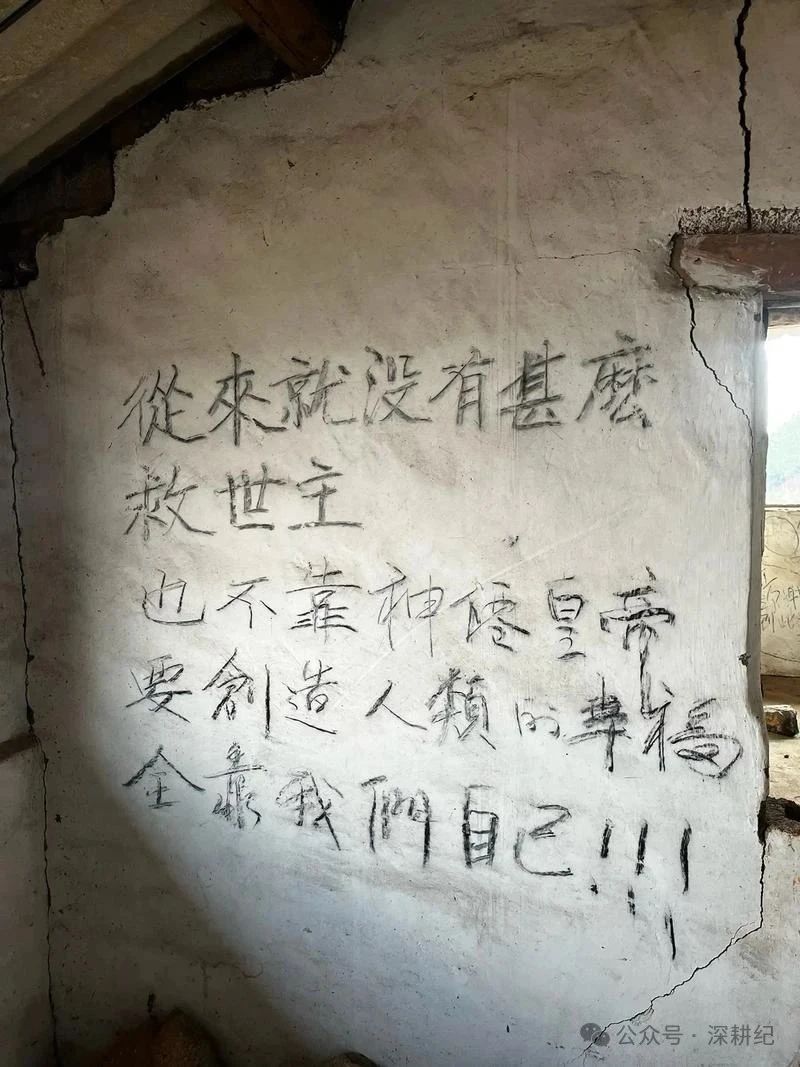 從來就没有甚麽
救世主
也不靠神僊皇帝
要創造人類的幸福
全靠我們自己!!!
公众号·深耕纪